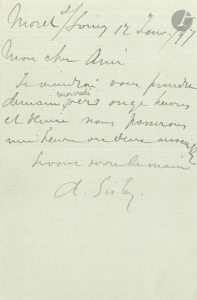 Moret s/Loing 12 Janv. / 97
Mon cher Ami
Je viendrai vous prendre
demain mercredi vers onze heures
et demie nous passerons
une heure ou deux ensemble
vous serre la main
A. Sisley.